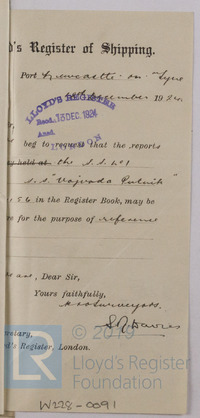 d's Register of Shipping.
Port Newcastle-on-Tyne
December 1924.
LLOYD'S REGISTER
Recd. 13 DEC. 1924
Ansd.
beg to request that the reports
held at the S.S. No
S.S "Vojvoda Putnik"
56 in the Register Book, may be
e for the purpose of reference
e are, Dear Sir,
Yours faithfully,
Surveyors.
Davies
cretary,
d's Register, London.
© 2019
LR
Lloyd's Register
Foundation
W228-0091